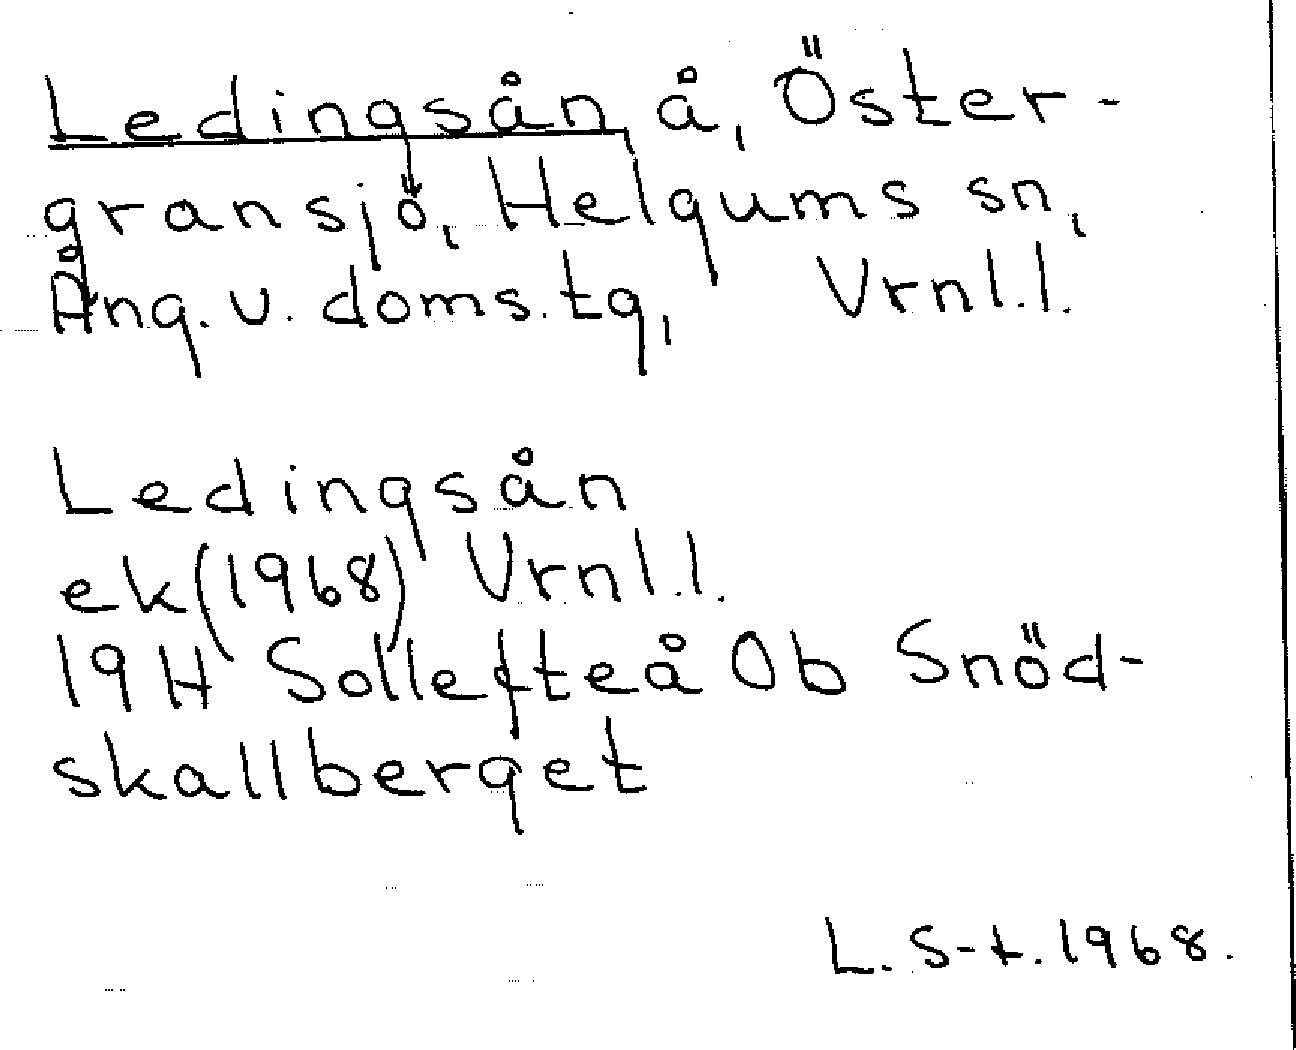 Ledingsån å, Öster-
gransjö, Helgums sn,
Ång.v. doms.tg, Vrnl.l.
Ledingsån
ek(1968) Vrnl.l.
19H Sollefteå 0b Snöd-
skallberget
L. S-t. 1968.